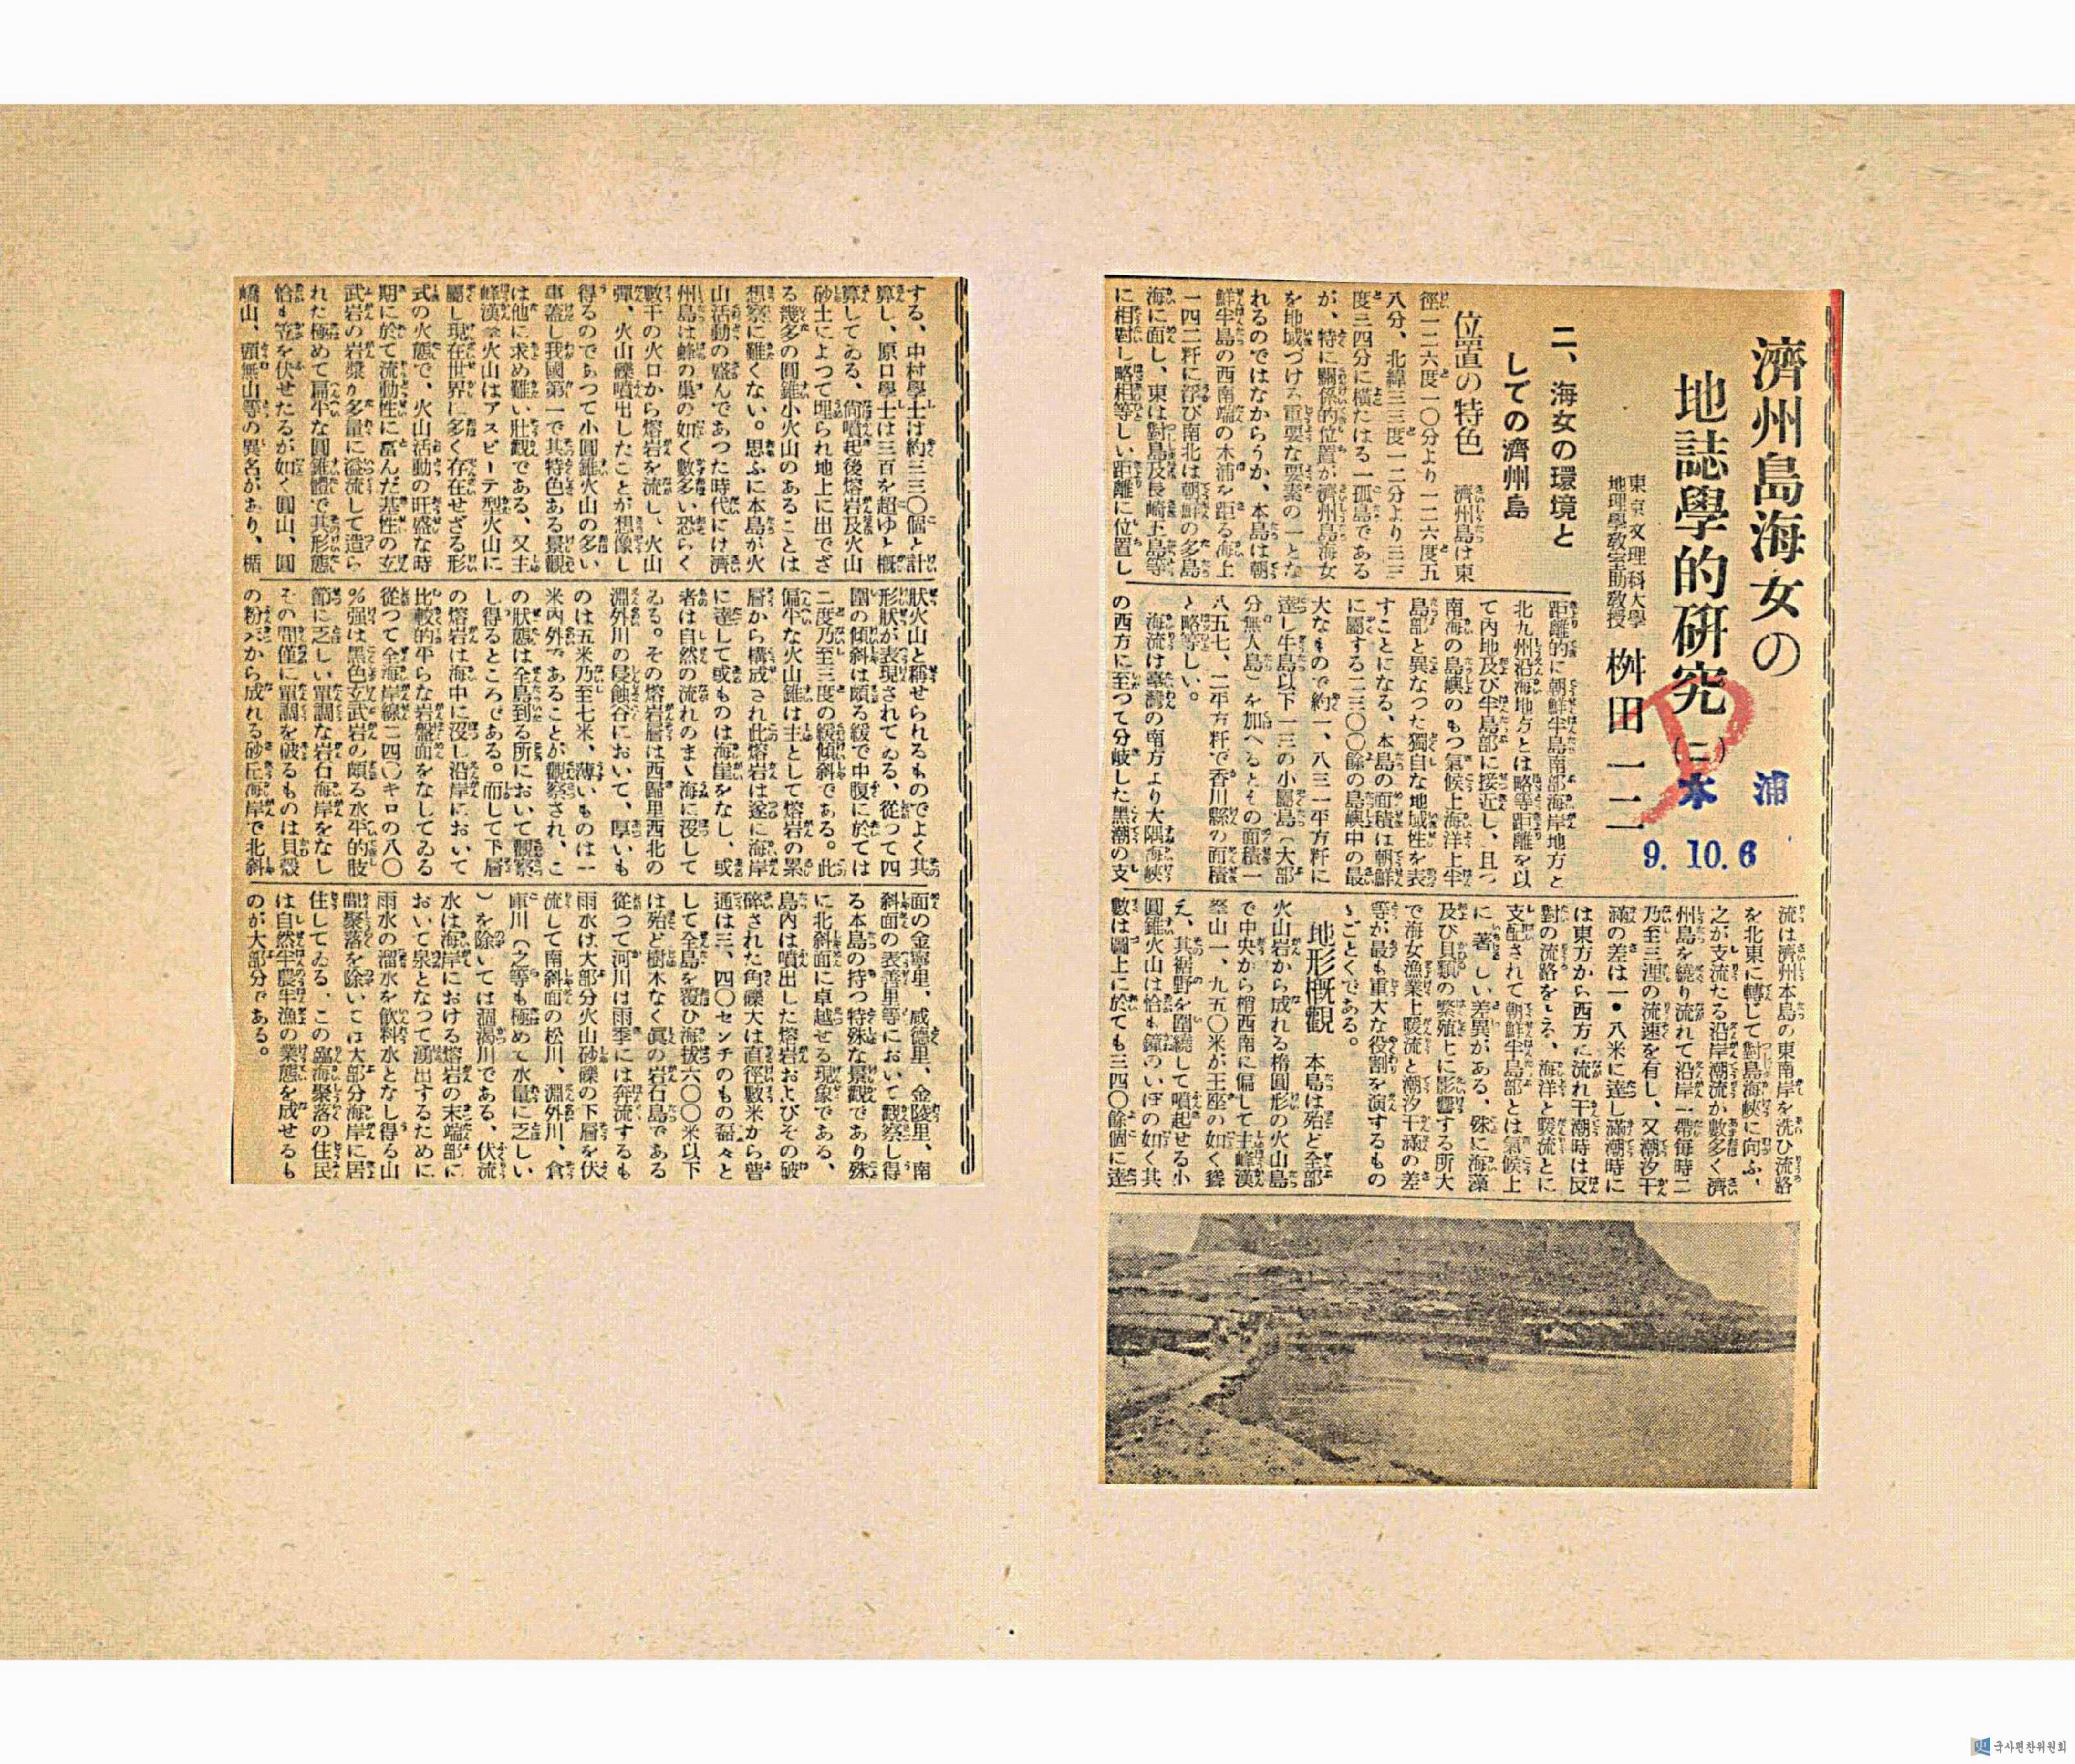 濟州島海女の
地誌學的硏究(二)
木浦
9.10.6
東京文理科大學
地理學敎室助敎授
桝田一二
二、海女の環境と
しての濟州島
位置の特色　濟州島は東
徑一二六度一〇分より一二六度五
八分、北緯三三度一二分より三三
度三四分に橫たはる一孤島である
が、特に關係的位置が濟州島海女
を地域づける重要な要素の一とな
れるのではなからうか、本島は朝
鮮半島の西南端の木浦を距る海上
一四二粁に浮び南北は朝鮮の多島
海に面し、東は對馬及長崎五島等
に相對し略相等しい距離に位置し
距離的に朝鮮半島南部海岸地方と
北九州沿海地方とは略等距離を以
て內地及び半島部に接近し、且つ
南海の島嶼のもつ氣候上海洋上半
島部と異なつた獨自な地域性を表
すことになる、本島の面積は朝鮮
に屬する二三〇〇餘の島嶼中の最
大なもので約一、八三一平方粁に
達し牛島以下一三の小屬島（大部
分無人島）を加へるとその面積一
八五七、二平方粁で香川縣の面積
と略等しい。
海流は臺灣の南方より大隅海峽
の西方に至つて分岐した黑潮の支
流は濟州本島の東南岸を洗ひ流路
を北東に轉じて對島海峽に向ふ、
之が支流たる沿岸潮流か數多く濟
州島を繞り流れて沿岸一帶每時二
乃至三浬の流速を有し、又潮汐干
滿の差は一・八米に達し滿潮時に
は東方から西方に流れ干潮時は反
對の流路をとる、海洋と暖流とに
支配されて朝鮮半島部とは氣候上
に著しい差異がある、殊に海藻
及び貝類の繁殖上に影響する所大
で海女漁業上暖流と潮汐干滿の差
等が最も重大な役割を演するもの
ゝごとくである。
地形槪觀　本島は殆ど全部
火山岩から成れる楕圓形の火山島
で中央から稍西南に偏して主峰漢
拏山一、九五〇米が王座の如く聳
え、其裾野を圍繞して噴起せる小
圓錐火山は恰も鐘のいぼの如く其
數は圖上に於ても三四〇餘個に達
する、中村學士は約三三〇個と計
算し、原口學士は三百を超ゆと槪
算してゐる、尙噴起後熔岩及火山
砂土によつて埋られ地上に出でざ
る幾多の圓錐小火山のあることは
想察に難くない。思ふに本島が火
山活動の盛んであつた時代にけ濟
州島は蜂の巢の如く數多い恐らく
數千の火口から熔岩を流し、火山
彈、火山礫噴出したことが想像し
得るのであつて小圓錐火山の多い
事蓋し我國第一で其特色ある景觀
は他に求め難い壯觀である、又主
峰漢拏火山はアスピーテ型火山に
屬し現在世界に多く存在せざる形
式の火態で、火山活動の旺盛な時
期に於て流動性に富んだ基性の玄
武岩の岩漿が多量に溢流して造ら
れた極めて扁平な圓錐體で其形態
恰も笠を伏せたるが如く圓山、圓
嶠山、頭無山等の異名があり、楯
狀火山と稱せられるものでよく其
形狀が表現されてゐる、從つて四
圍の傾斜は頗る緩で中腹に於ては
二度乃至三度の緩傾斜である。此
偏牛な火山錐は主として熔岩の累
層から構成され此熔岩は遂に海岸
に達して或ものは海崖をなし、或
者は自然の流れのまゝ海に沒して
ゐる。その熔岩層は西歸里西北の
淵外川の侵蝕谷において、厚いも
のは五米乃至七米、薄いものは一
米內外であることが觀察され、こ
の狀態は全島到る所において觀察
し得るところである。而して下層
の熔岩は海中に沒し沿岸において
比較的平らな岩盤面をなしてゐる
從つて全海岸線二四〇キロの八〇
％强は黑色玄武岩の頗る水平的肢
節に乏しい單調な岩石海岸をなし
その間僅に單調を破るものは貝殼
の粉末から成れる砂丘海岸で北斜
面の金寧里、咸德里、金陵里、南
斜面の表善里等において觀察し得
る本島の持つ特殊な景觀であり殊
に北斜面に卓越せる現象である、
島內は噴出した熔岩およびその破
碎された角礫大は直徑數米から普
通は三、四〇センチのもの磊々と
して全島を覆ひ海拔六〇〇米以下
は殆ど樹木なく眞の岩石島である
從つて河川は雨季には奔流するも
雨水は大部分火山砂礫の下層を伏
流して南斜面の松川、淵外川、倉
庫川（之等も極めて水量に乏しい
）を除いては涸渴川である、伏流
水は海岸における熔岩の末端部に
おいて泉となつて湧出するために
雨水の溜水を飮料水となし得る山
間聚落を除いては大部分海岸に居
住してゐる、この臨海聚落の住民
は自然半農半漁の業態を成せるも
のが大部分である。
국사편찬위원회